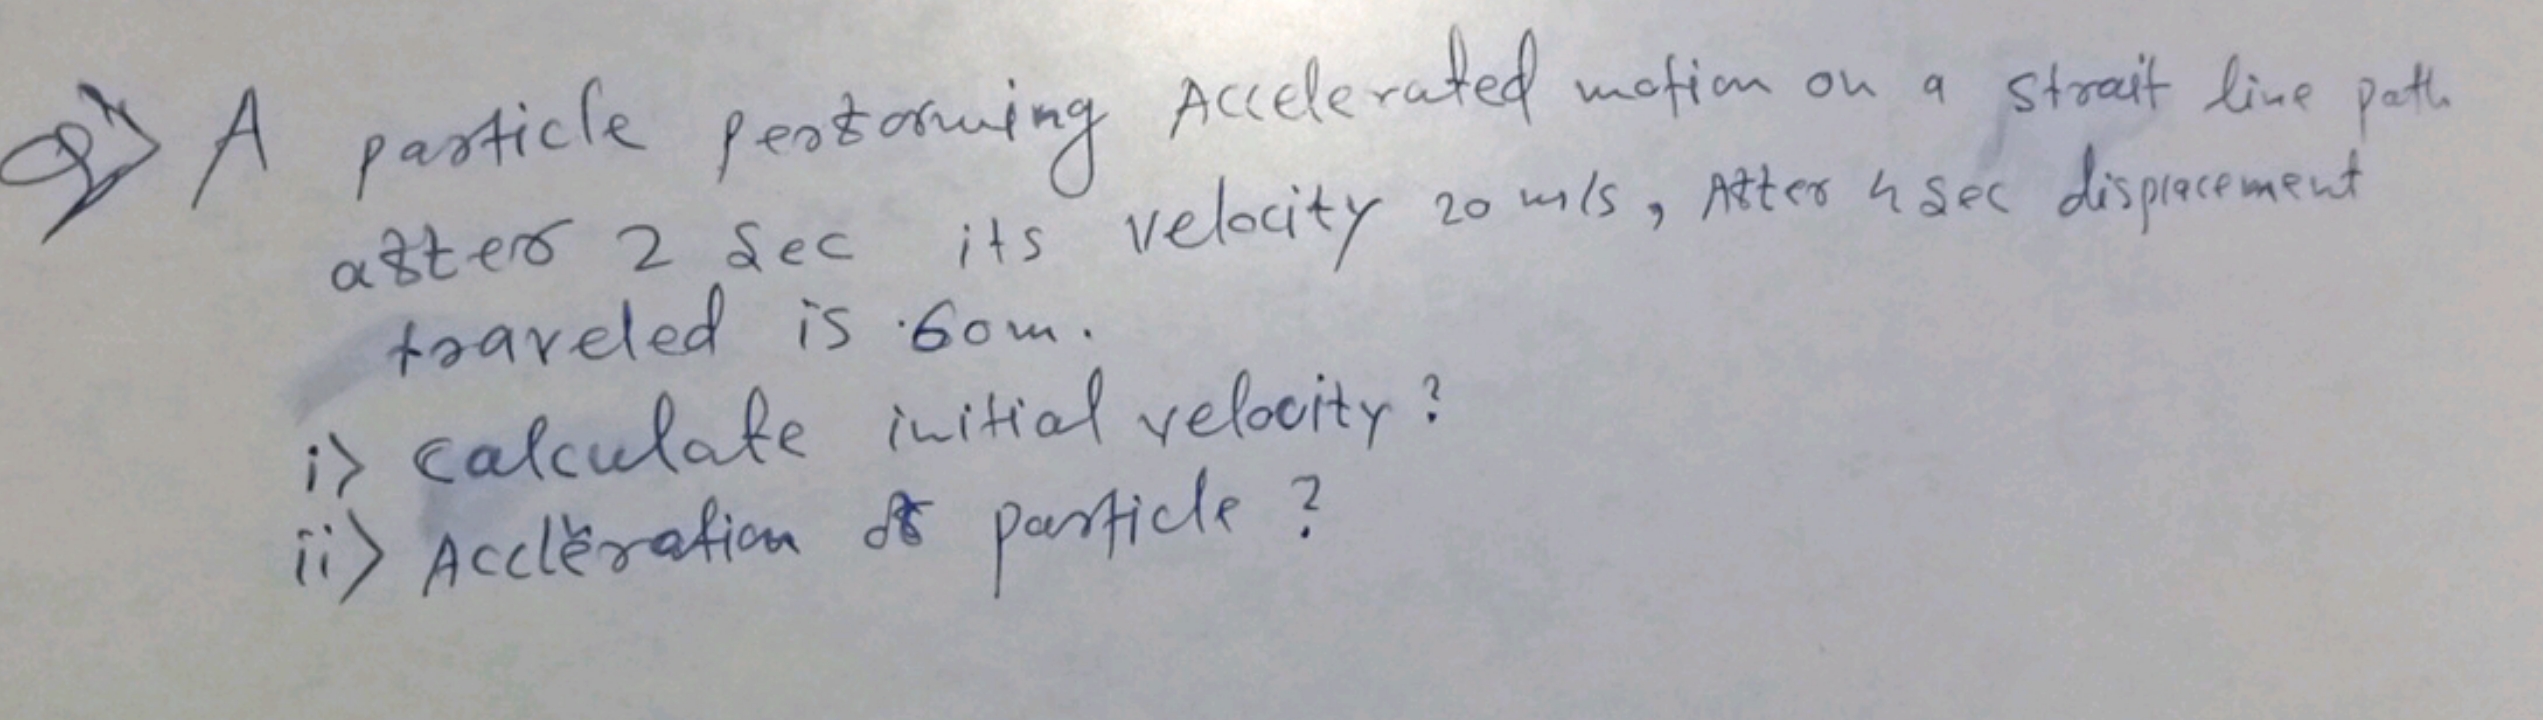 Q> A particle performing Accelerated motion on a strait line path
after 2 sec its velocity 20 m/s, After 4 sec displacement
traveled is 60m.
i> calculate initial velocity?
ii> Accleration of particle?